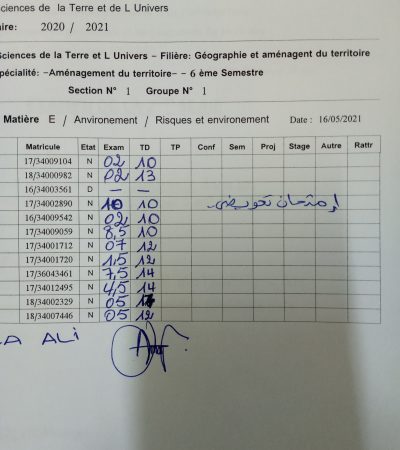 Sciences de la Terre et de L Univers
aire: 2020 / 2021
Sciences de la Terre et L Univers - Filière: Géographie et aménagent du territoire
pécialité: -Aménagement du territoire- - 6 ème Semestre
Section N° 1 Groupe N° 1
Matière E / Anvironement / Risques et environement Date : 16/05/2021
Matricule Etat Exam TD TP Conf Sem Proj Stage Autre Rattr
17/34009104 N 02 10
18/34000982 N 02 13
16/34003561 D — —
17/34002890 N 10 10 إمتحان تعويضي
16/34009542 N 02 10
17/34009059 N 8,5 10
17/34001712 N 07 12
17/34001720 N 1,5 12
17/36043461 N 7,5 14
17/34012495 N 4,5 14
18/34002329 N 05
18/34007446 N 05 12
A ALi